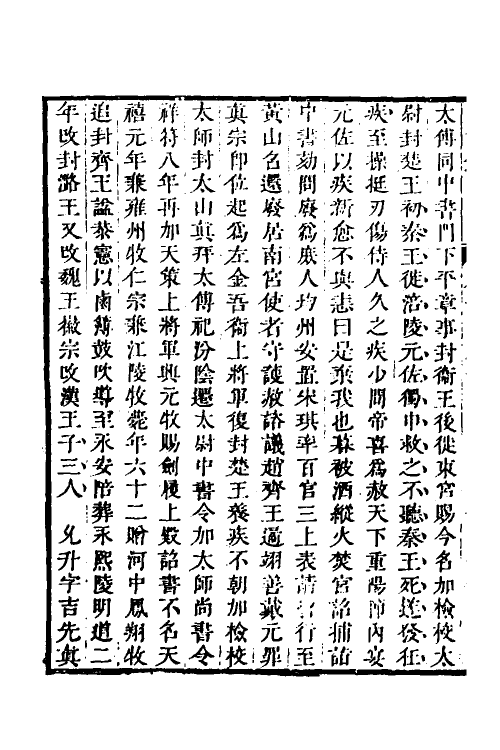 太傅同中書門下平章事封衞王後徙東宮賜今名加檢校太
尉封楚王初秦王徙涪陵元佐獨申救之不聽秦王死遂發狂
疾至操挺刃傷侍人久之疾少間帝喜爲赦天下重陽節內宴
元佐以疾新愈不與恚曰是棄我也暮被酒縱火焚宮詔捕詣
中書劾問廢爲庶人均州安置宋琪率百官三上表請行至
黃山召還廢居南宮使者守護赦諮議趙齊王遹翊善戴元罪
眞宗即位起爲左金吾衞上將軍復封楚王養疾不朝加檢校
太師封太山眞拜太傅祀汾陰還太尉中書令加太師尚書令
祥符八年再加天策上將軍興元牧賜劍履上殿詔書不名天
禧元年兼雍州牧仁宗兼江陵牧薨年六十二贈河中鳳翔牧
追封齊王諡恭憲以鹵簿鼓吹導至永安陪葬永熙陵明道二
年改封潞王又改魏王徽宗改漢王子三人 允升字吉先眞